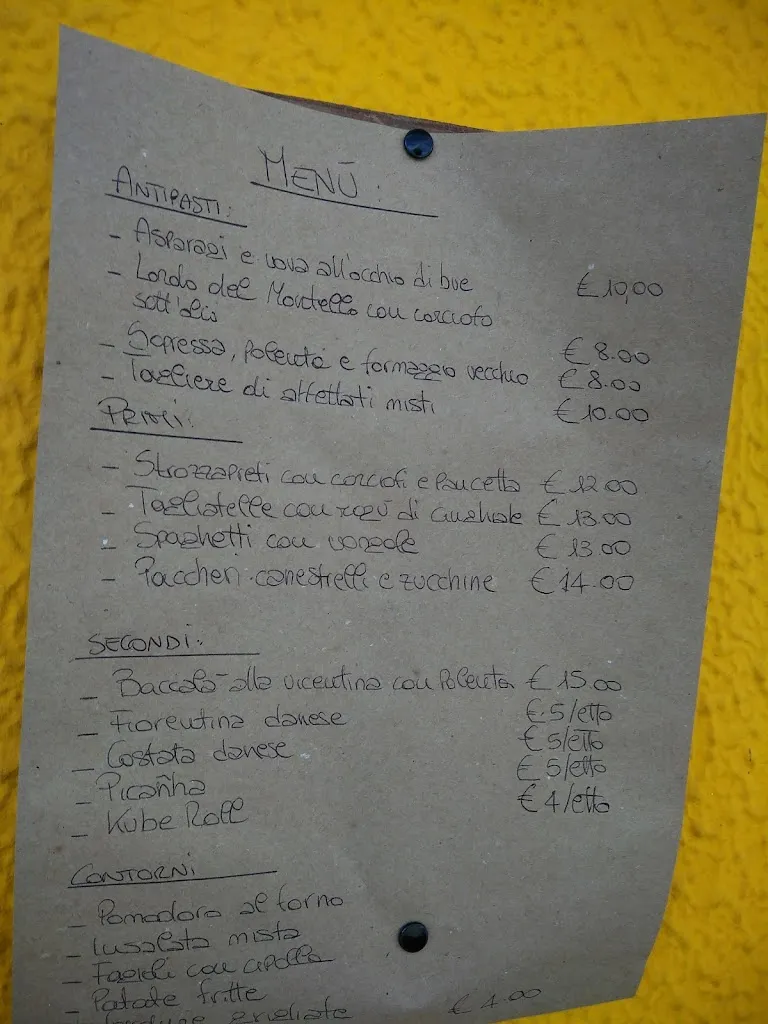 MENŪ:
ANTIPASTI:
- Asparagi e uova all'occhio di bue € 10,00
- Lardo del Montello con carciofo
sott'olio € 8.00
- Sopressa, polenta e formaggio vecchio € 8.00
- Tagliere di affettati misti € 10.00
PRIMI:
- Strozzapreti con carciofi e pancetta € 12.00
- Tagliatelle con ragù di € 13.00
- Spaghetti con vongole € 13.00
- Paccheri canestrelli e zucchine € 14.00
SECONDI:
- Baccalà alla vicentina con polenta € 15.00
- Fiorentina danese € 5/etto
- Costata danese € 5/etto
- Picanha € 5/etto
- Kube Roll € 4/etto
CONTORNI
- Pomodoro al forno
- Insalata mista
- Fagioli con cipolla
- Patate fritte
grigliate € 4.00